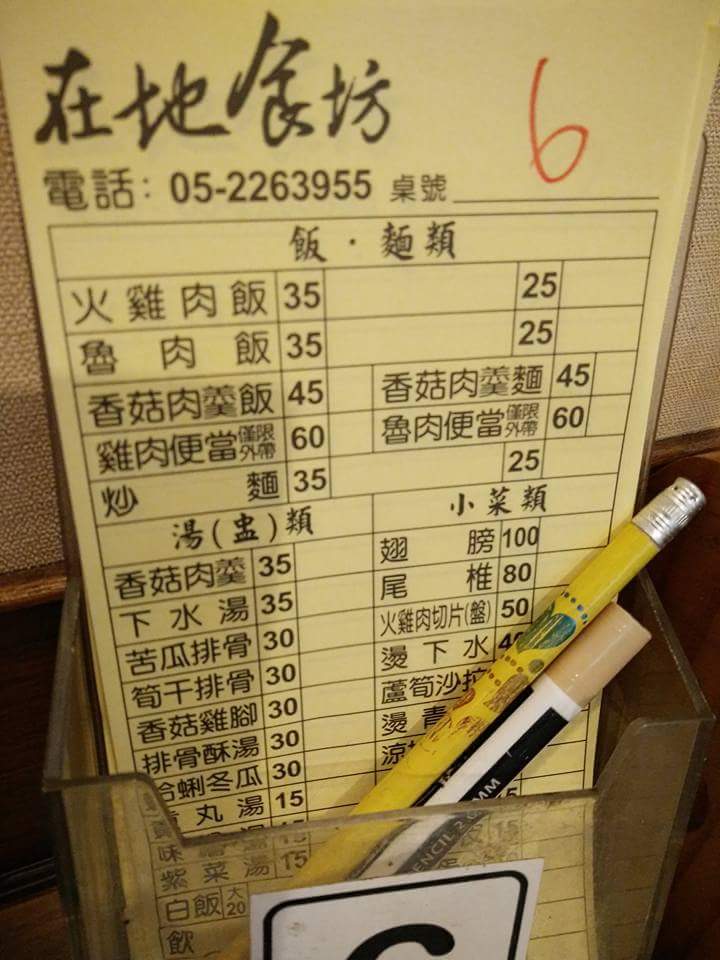 在地食坊
6
電話：05-2263955 桌號
飯．麵類
火雞肉飯 35 25
魯肉飯 35 25
香菇肉羹飯 45 香菇肉羹麵 45
雞肉便當 僅限外帶 60 魯肉便當 僅限外帶 60
炒麵 35 25
湯(盅)類 小菜類
香菇肉羹 35 翅膀 100
下水湯 35 尾椎 80
苦瓜排骨 30 火雞肉切片(盤) 50
筍干排骨 30 燙下水
香菇雞腳 30 蘆筍沙拉
排骨酥湯 30 燙青
蛤蜊冬瓜 30
丸湯 15
味湯 15 15
紫菜湯 15
白飯 大 20
飲